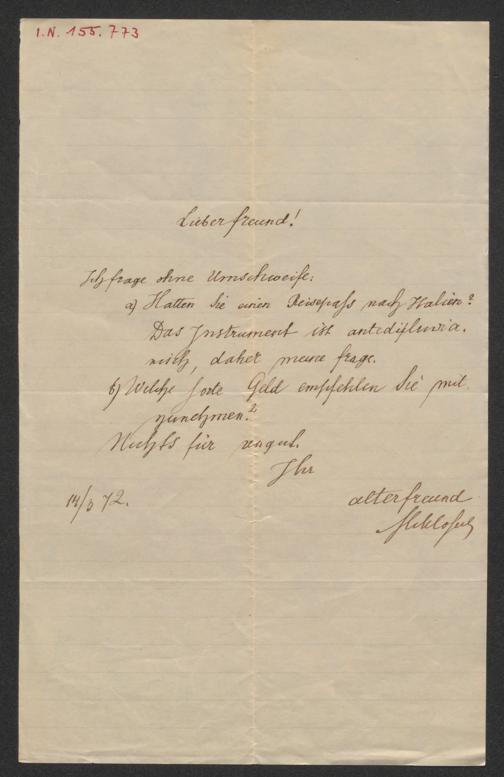 I.N. 155.773
Lieber Freund!
Ich frage ohne Umschweife:
a) Hatten Sie einen Reisepaß nach Italien?
Das Instrument ist antediluvia-
nisch, daher meine Frage.
b) Welche Sorte Geld empfehlen Sie mit-
zunehmen?
Nichts für ungut.
Ihr
alter Freund
14/3 72.